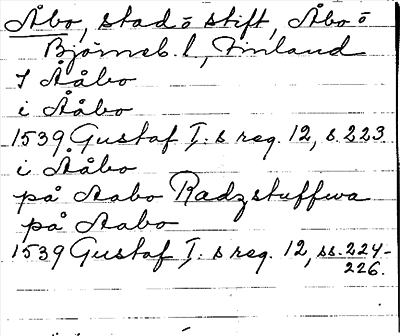 Åbo, stad o stift, Åbo o
Björneb. l, Finland
I Åabo
i Åabo
1539 Gustaf I:s reg. 12, s. 223
i Åabo
på Aabo Radzstuffwa
på Aabo
1539 Gustaf I:s reg. 12, ss. 224-
226.